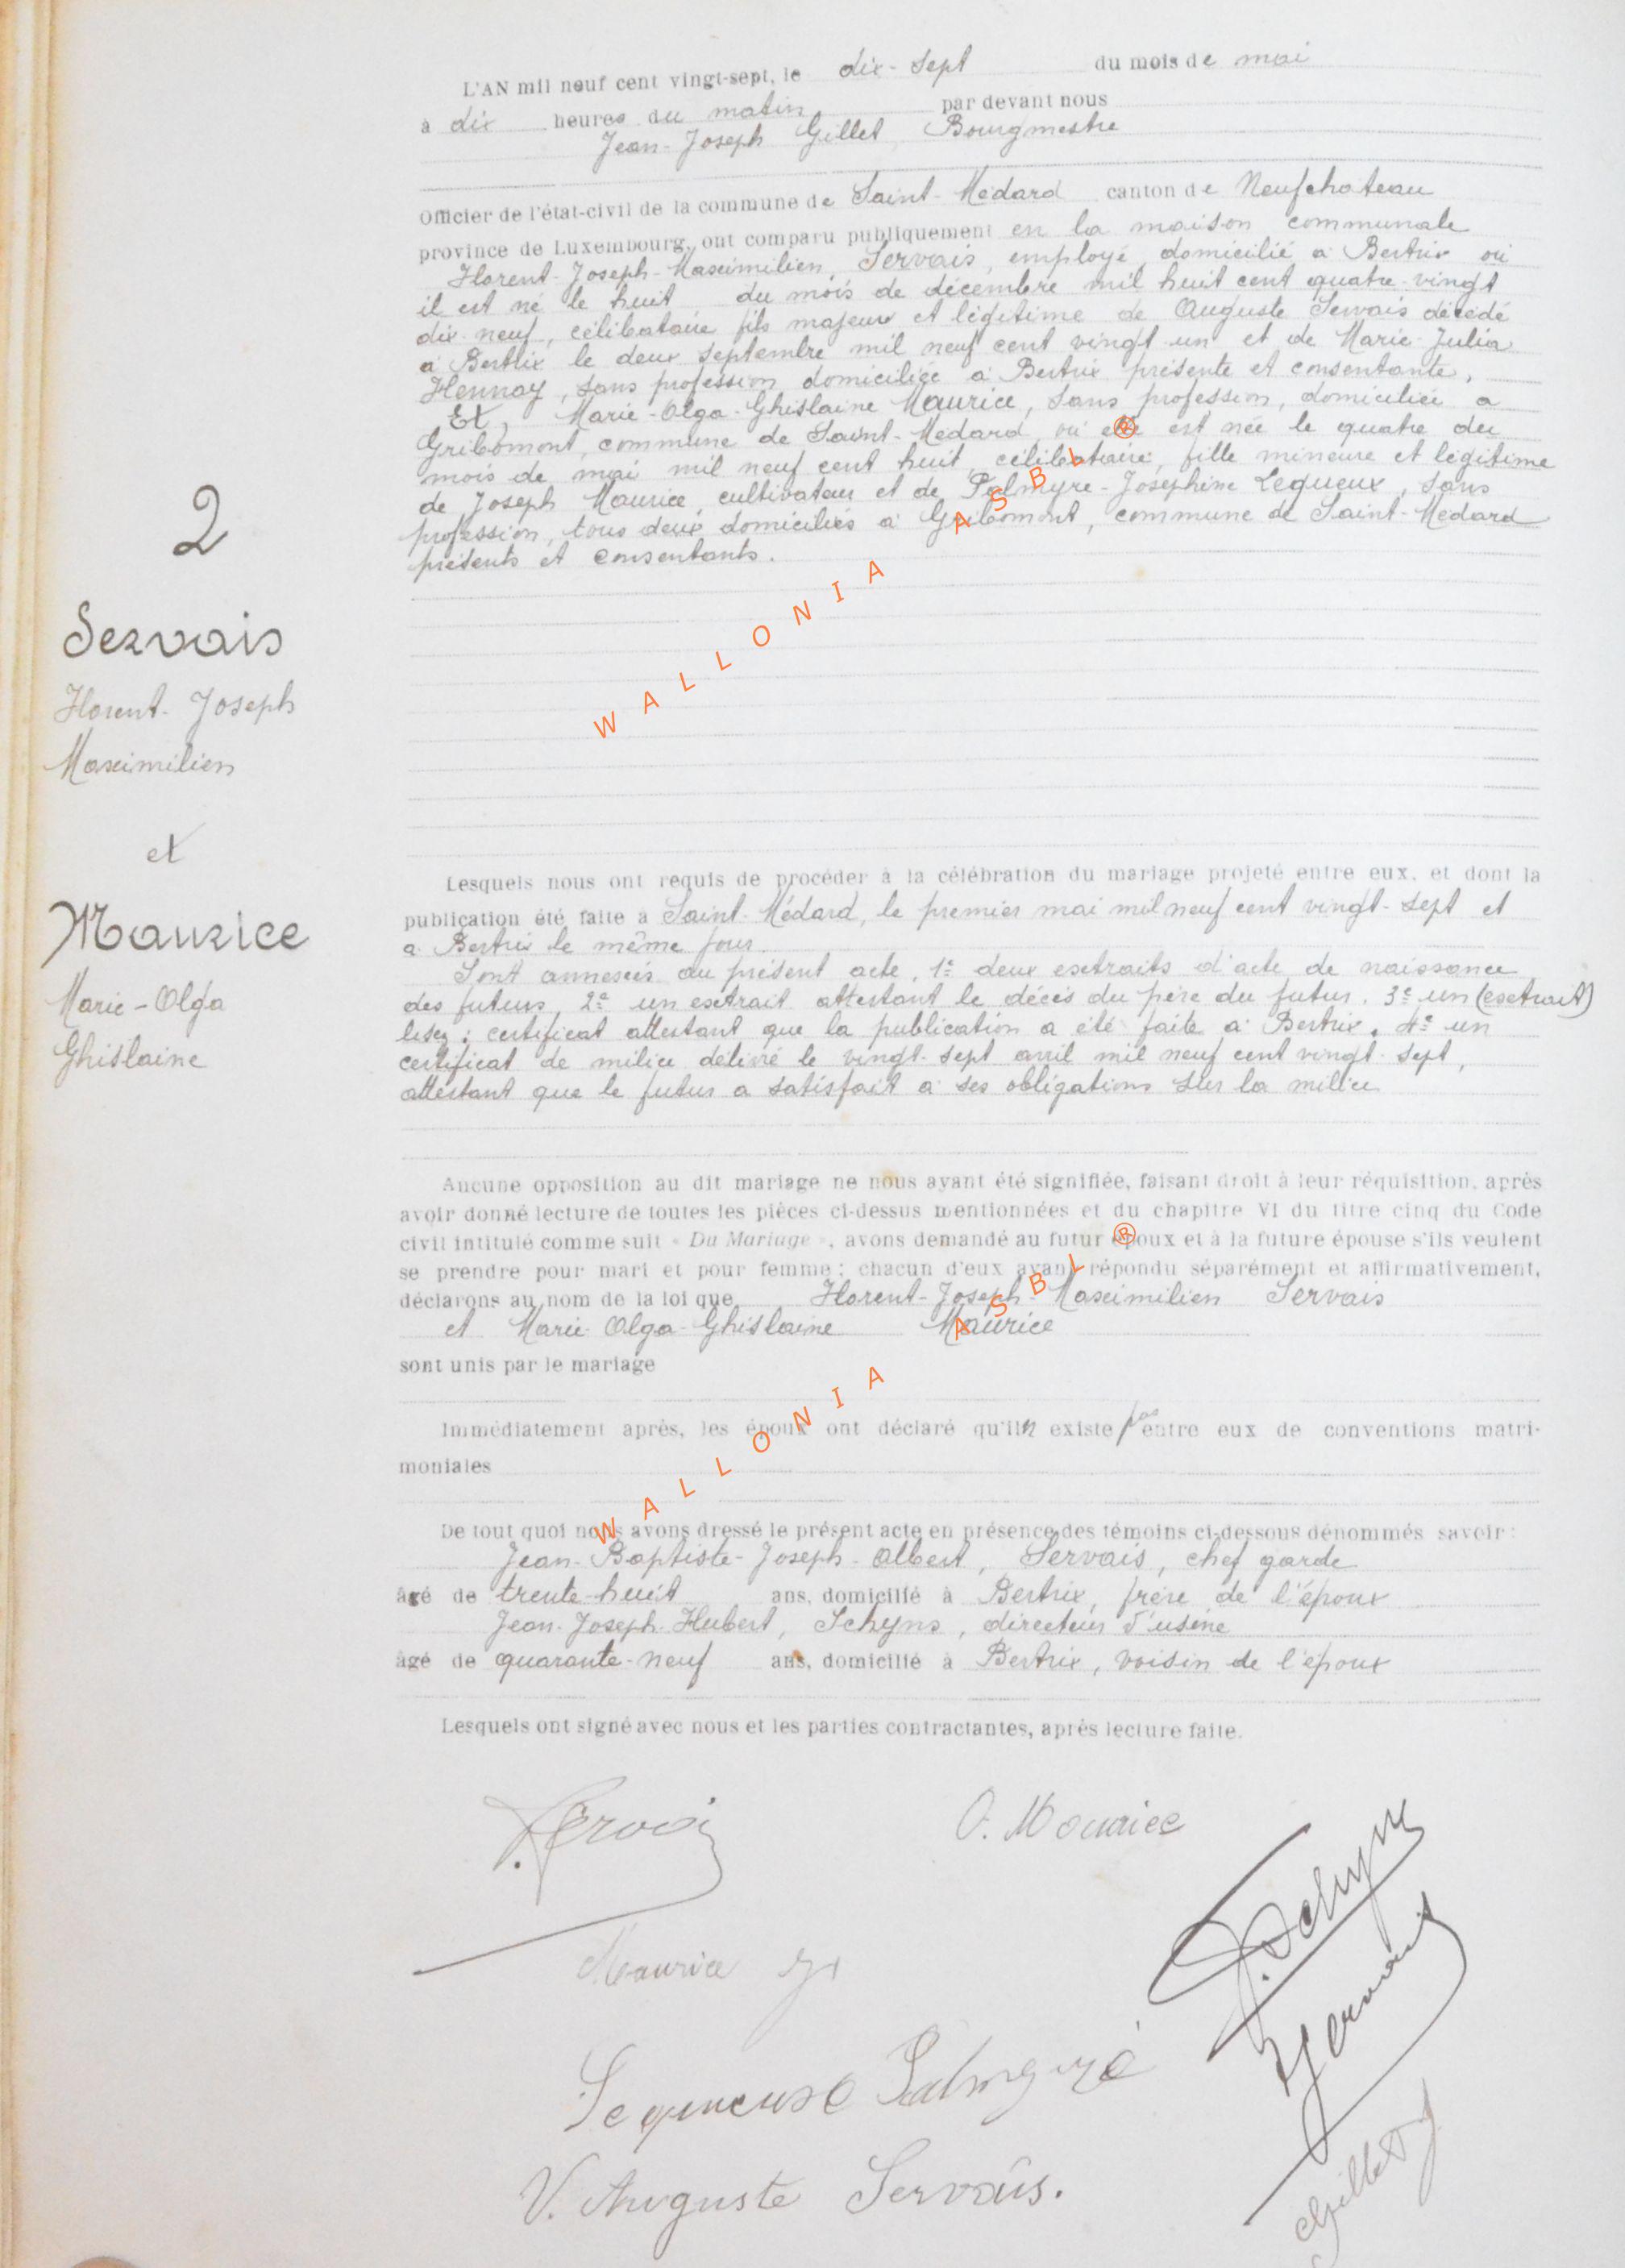 L'AN mil neuf cent vingt-sept, le dix-sept du mois de mai
à dix heures du matin par devant nous
Jean-Joseph Gillet, Bourgmestre
Officier de l'état-civil de la commune de Saint-Médard canton de Neufchateau
province de Luxembourg, ont comparu publiquement en la maison communale
Florent-Joseph-Maximilien, Servais, employé, domicilié à Bertrix où
il est né le huit du mois de décembre mil huit cent quatre-vingt
dix-neuf, célibataire fils majeur et légitime de Auguste Servais décédé
à Bertrix le deux septembre mil neuf cent vingt-un et de Marie-Julia
Hennay, sans profession, domiciliée à Bertrix présente et consentante,
Et, Marie-Olga-Ghislaine Maurice, sans profession, domiciliée à
Gribomont, commune de Saint-Médard, où elle est née le quatre du
mois de mai mil neuf cent huit, célibataire, fille mineure et légitime
de Joseph Maurice, cultivateur et de Palmyre-Joséphine Lequeux, sans
profession, tous deux domiciliés à Gribomont, commune de Saint-Médard
présents et consentants.
2
Servais
Florent-Joseph
Maximilien
et
Maurice
Marie-Olga
Ghislaine
WALLONIA ASBL ®
Lesquels nous ont requis de procéder à la célébration du mariage projeté entre eux, et dont la
publication été faite à Saint-Médard, le premier mai mil neuf cent vingt-sept et
à Bertrix le même jour.
Sont annexés au présent acte, 1e deux extraits d'acte de naissance
des futurs, 2e un extrait attestant le décès du père du futur. 3e un (extrait)
lisez: certificat attestant que la publication a été faite à Bertrix. 4e un
certificat de milice délivré le vingt-sept avril mil neuf cent vingt-sept,
attestant que le futur a satisfait à ses obligations sur la milice
Aucune opposition au dit mariage ne nous ayant été signifiée, faisant droit à leur réquisition, après
avoir donné lecture de toutes les pièces ci-dessus mentionnées et du chapitre VI du titre cinq du Code
civil intitulé comme suit « Du Mariage », avons demandé au futur époux et à la future épouse s'ils veulent
se prendre pour mari et pour femme ; chacun d'eux ayant répondu séparément et affirmativement,
déclarons au nom de la loi que Florent-Joseph-Maximilien Servais
et Marie-Olga-Ghislaine Maurice
sont unis par le mariage
WALLONIA ASBL ®
Immédiatement après, les époux ont déclaré qu'il n existe pas entre eux de conventions matri-
moniales
De tout quoi nous avons dressé le présent acte en présence des témoins ci-dessous dénommés savoir :
Jean-Baptiste-Joseph-Albert, Servais, chef garde
âgé de trente-huit ans, domicilié à Bertrix, frère de l'époux
Jean-Joseph-Hubert, Schyns, directeur d'usine
âgé de quarante-neuf ans, domicilié à Bertrix, voisin de l'époux
Lesquels ont signé avec nous et les parties contractantes, après lecture faite.
Servais
O. Mauriee
Schyns
Maurice
Servais
Lequeuxe Palmyre
V. Auguste Servais.
Gillet J